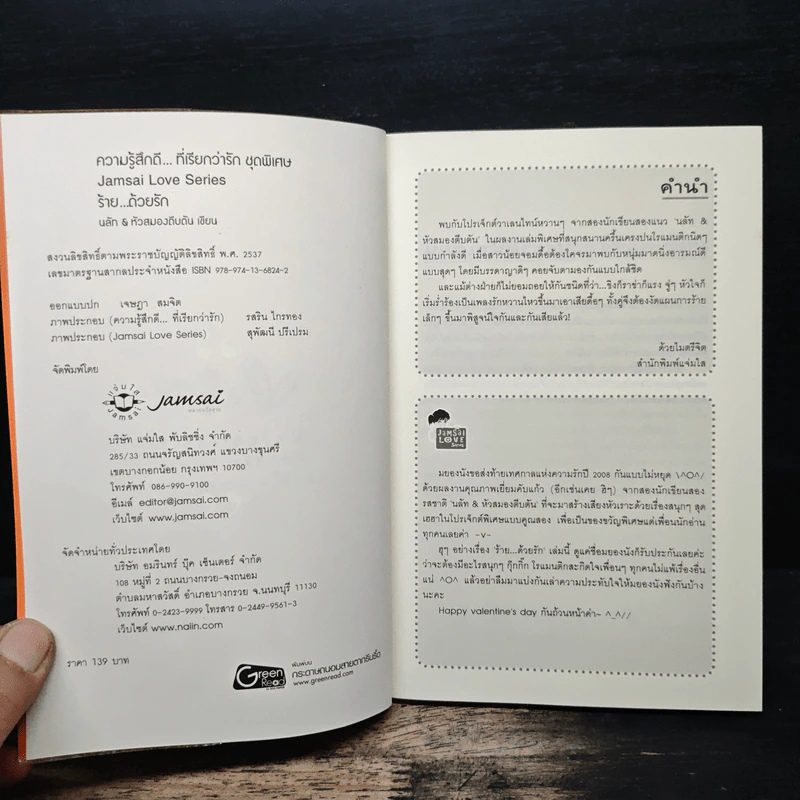 ความรู้สึกดี... ที่เรียกว่ารัก ชุดพิเศษ
Jamsai Love Series
ร้าย...ด้วยรัก
นลัท & หัวสมองตีบตัน เขียน
สงวนลิขสิทธิ์ตามพระราชบัญญัติลิขสิทธิ์ พ.ศ. 2537
เลขมาตรฐานสากลประจำหนังสือ ISBN 978-974-13-6824-2
ออกแบบปก เจษฎา สมจิต
ภาพประกอบ (ความรู้สึกดี... ที่เรียกว่ารัก) รสริน ไกรทอง
ภาพประกอบ (Jamsai Love Series) สุพัฒนี ปรีเปรม
จัดพิมพ์โดย
แจ่มใส
Jamsai
Jamsai
บริษัท แจ่มใส พับลิชชิ่ง จำกัด
285/33 ถนนจรัญสนิทวงศ์ แขวงบางขุนศรี
เขตบางกอกน้อย กรุงเทพฯ 10700
โทรศัพท์ 086-990-9100
อีเมล์ editor@jamsai.com
เว็บไซต์ www.jamsai.com
จัดจำหน่ายทั่วประเทศโดย
บริษัท อมรินทร์ บุ๊ค เซ็นเตอร์ จำกัด
108 หมู่ที่ 2 ถนนบางกรวย-จงถนอม
ตำบลมหาสวัสดิ์ อำเภอบางกรวย จ.นนทบุรี 11130
โทรศัพท์ 0-2423-9999 โทรสาร 0-2449-9561-3
เว็บไซต์ www.naiin.com
ราคา 139 บาท
Green Read
พิมพ์บน
กระดาษถนอมสายตากรีนรี้ด
www.greenread.com
คำนำ
พบกับโปรเจ็กต์วาเลนไทน์หวานๆ จากสองนักเขียนสองแนว 'นลัท &
หัวสมองตีบตัน' ในผลงานเล่มพิเศษที่สนุกสนานครื้นเครงปนโรแมนติกนิดๆ
แบบกำลังดี เมื่อสาวน้อยจอมดื้อต้องโคจรมาพบกับหนุ่มมาดนิ่งอารมณ์ดี
แบบสุดๆ โดยมีบรรดาญาติๆ คอยจับตามองกันแบบใกล้ชิด
และแม้ต่างฝ่ายก็ไม่ยอมถอยให้กันชนิดที่ว่า...ขิงก็ราข่าก็แรง จู่ๆ หัวใจก็
เริ่มร่ำร้องเป็นเพลงรักหวานไหวขึ้นมาเอาเสียดื้อๆ ทั้งคู่จึงต้องงัดแผนการร้าย
เล็กๆ ขึ้นมาพิสูจน์ใจกันและกันเสียแล้ว!
ด้วยไมตรีจิต
สำนักพิมพ์แจ่มใส
JAMSAI
LOVE
Series
มยองนังขอส่งท้ายเทศกาลแห่งความรักปี 2008 กันแบบไม่หยุด \^O^/
ด้วยผลงานคุณภาพเยี่ยมคับแก้ว (อีกเช่นเคย ฮิๆ) จากสองนักเขียนสอง
รสชาติ 'นลัท & หัวสมองตีบตัน' ที่จะมาสร้างเสียงหัวเราะด้วยเรื่องสนุกๆ สุด
เฮฮาในโปรเจ็กต์พิเศษแบบคูณสอง เพื่อเป็นของขวัญพิเศษแด่เพื่อนนักอ่าน
ทุกคนเลยค่า -v-
ฮุๆ อย่างเรื่อง 'ร้าย...ด้วยรัก' เล่มนี้ ดูแค่ชื่อมยองนังก็รับประกันเลยค่ะ
ว่าจะต้องมีอะไรสนุกๆ กุ๊กกิ๊ก โรแมนติกสะกิดใจเพื่อนๆ ทุกคนไม่แพ้เรื่องอื่น
แน่ ^O^ แล้วอย่าลืมมาแบ่งกันเล่าความประทับใจให้มยองนังฟังกันบ้าง
นะคะ
Happy valentine's day กันถ้วนหน้าค่า~ ^_^//